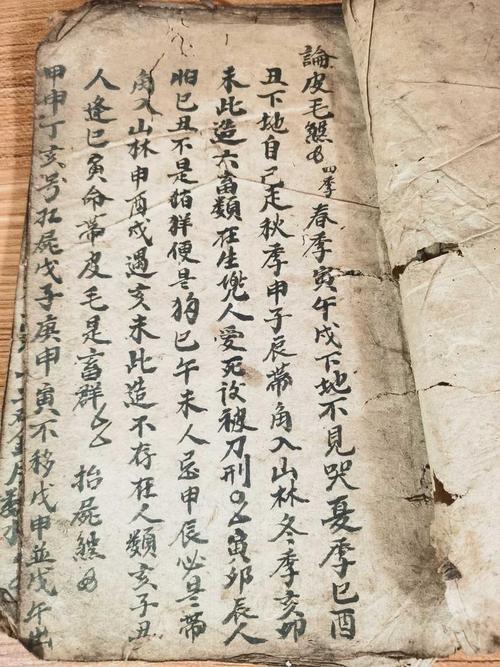 論皮毛煞 四季 春季寅午戌下地不見哭夏季巳酉
丑下地自己走秋季申子辰帶角入山林冬季亥卯
未此造六畜類在生兇人愛死後被刀刑 寅卯辰人
怕巳丑不是猪群便是狗巳午未人忌申辰必是帶
角入山林申酉戌遇亥未此造不存在人類亥子丑
人逢巳寅命帶皮毛是畜群 抬屍煞
甲申丁亥号扛屍戊子庚申寅不移戊申並戊午出